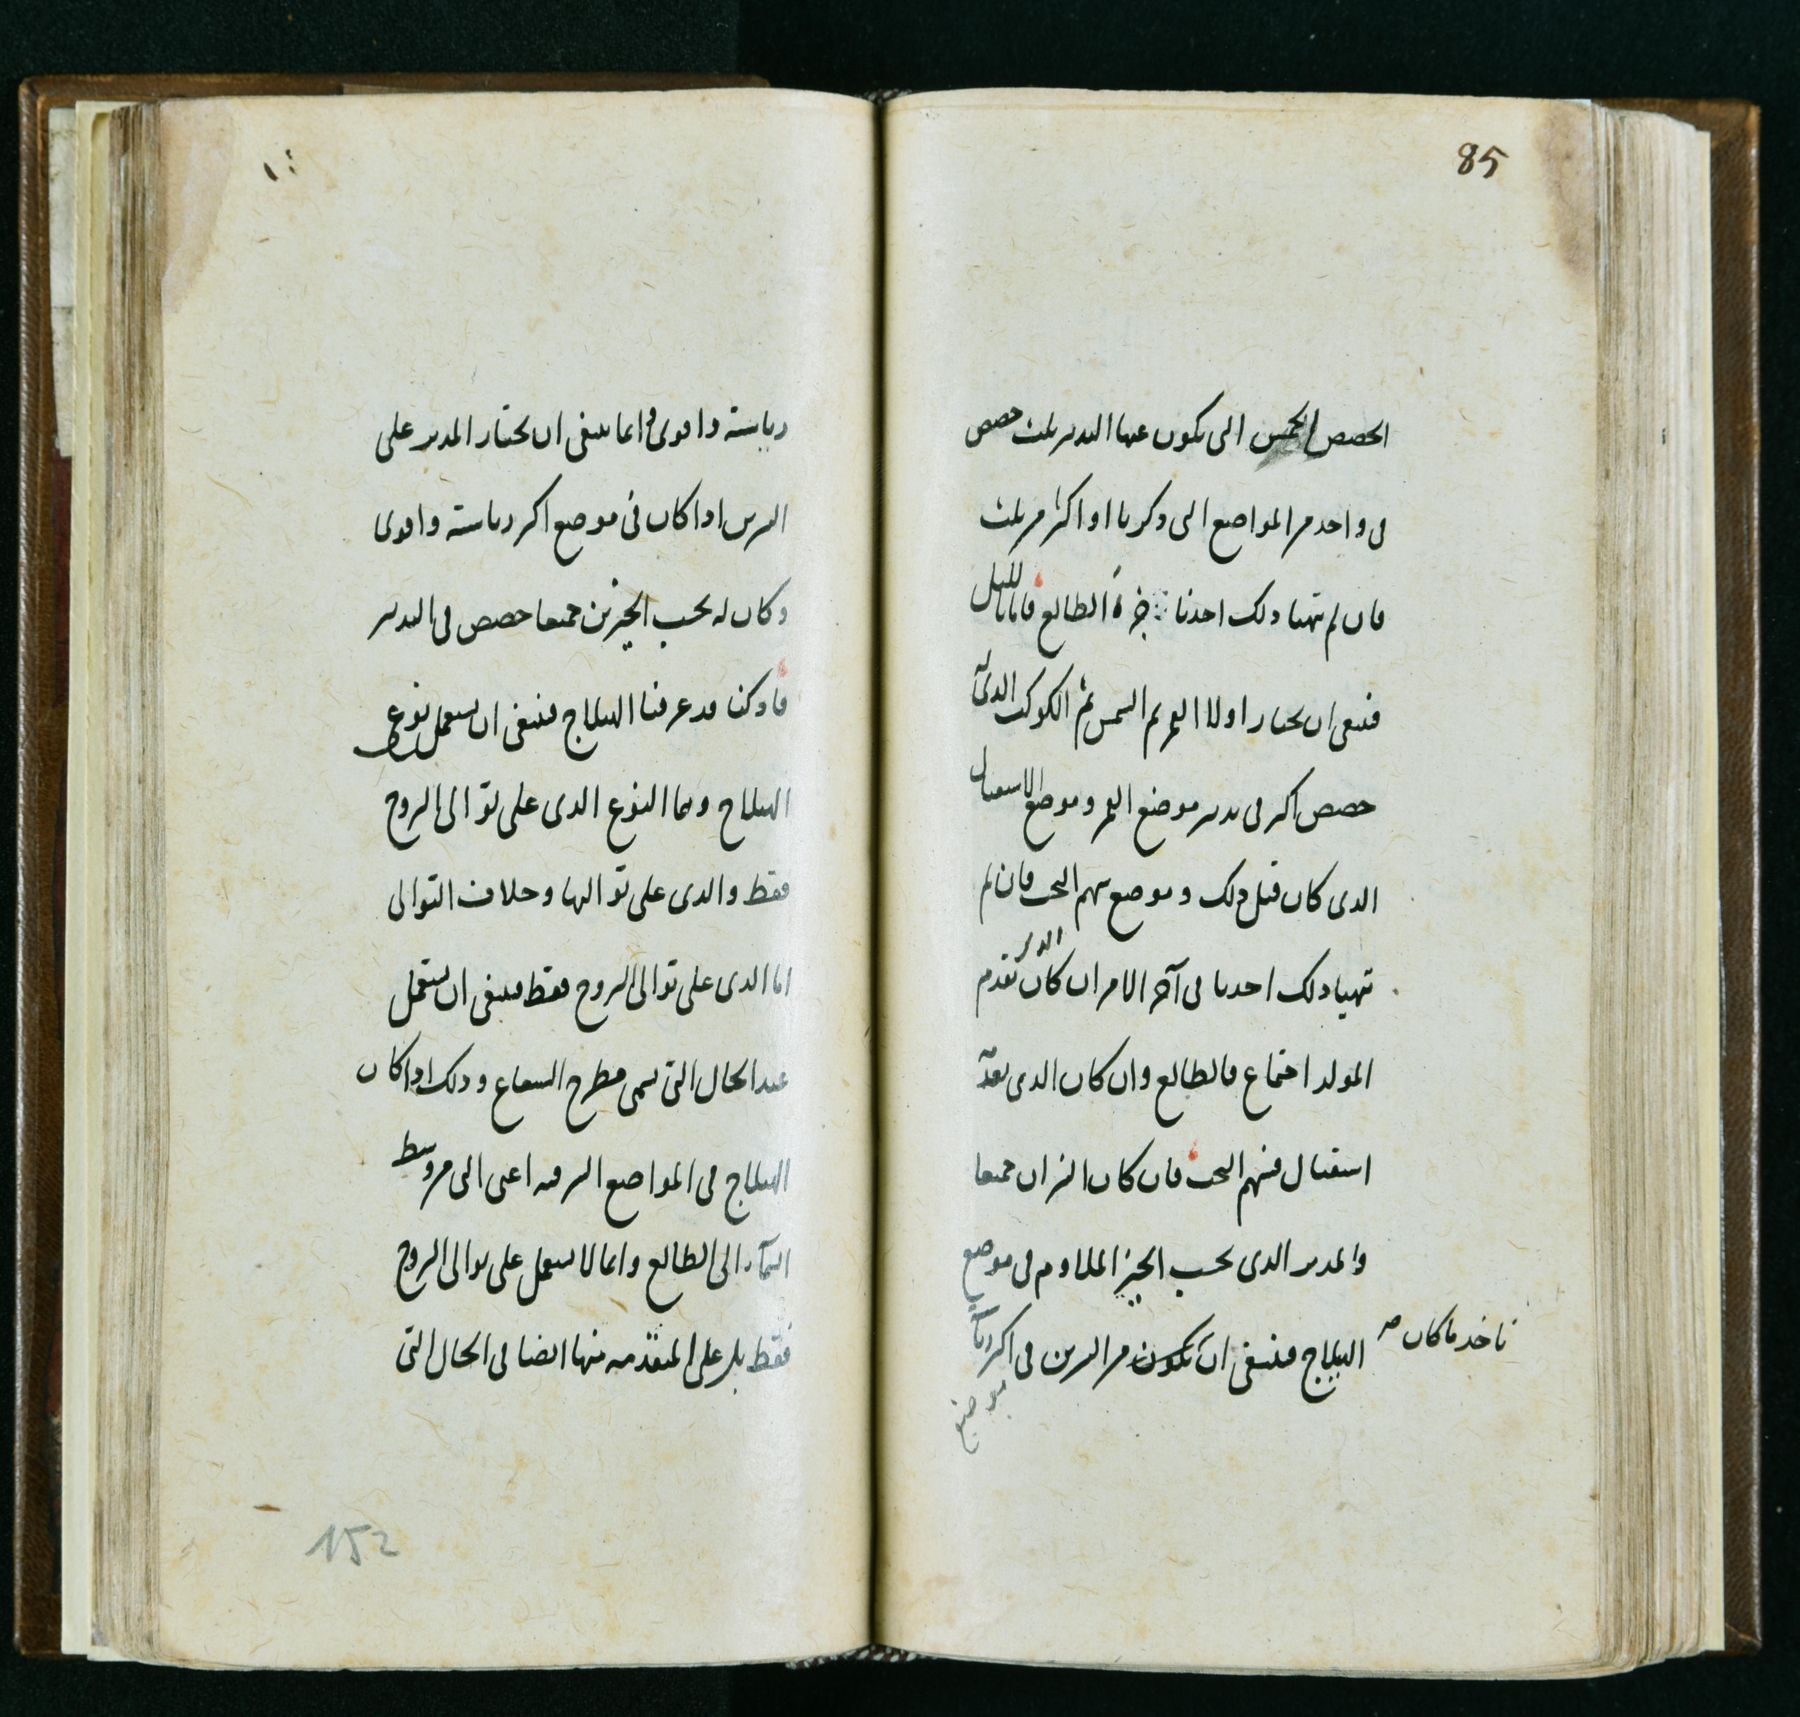 85
الحصص الخمس التى يكون عنها التدبير ثلث حصص
فى واحد من المواضع التى ذكرنا او اكثر من ثلث
فان لم يتهيا ذلك اخذنا جزءُ الطالع فاما بالليل
فينبغى ان نختار اولا القمر ثم الشمس ثم الكوكب الذى له
حصص اكثر فى تدبير موضع القمر وموضع الاستقبال
الذى كان قبل ذلك وموضع سهم البخت فان لم
يتهيا ذلك اخذنا فى آخر الامر ان كان الذى تقدم
المولد اجتماع فالطالع وان كان الذى تقدمه
استقبال فسهم البخت فان كان النيران جميعا
والمدبر الذى بحسب الحيز الملاوم فى موضع
الهيلاج فينبغى ان يكون من النيرين فى اكثر رياسة
ناخذ ما كان صـ
موضع
رياسة واقوى وانما ينبغى ان نختار المدبر على
النيرين اذا كان فى موضع اكثر رياسته واقوى
وكان له بحسب الحيزين جميعا حصص فى التدبير
فاذ كنا قد عرفنا الهيلاج فينبغى ان نستعمل نوعى
الهيلاج وهما النوع الذى على توالى البروج
فقط والذى على تواليها وخلاف التوالى
اما الذى على توالى البروج فقط فينبغى ان نستعمل
عند الحال التى تسمى مطرح الشعاع وذلك اذا كان
الهيلاج فى المواضع الشرقيه اعنى التى من وسط
السمآء الى الطالع وانما لا نستعمل على توالى البروج
فقط بل على المتقدمه منها ايضا فى الحال التى
152